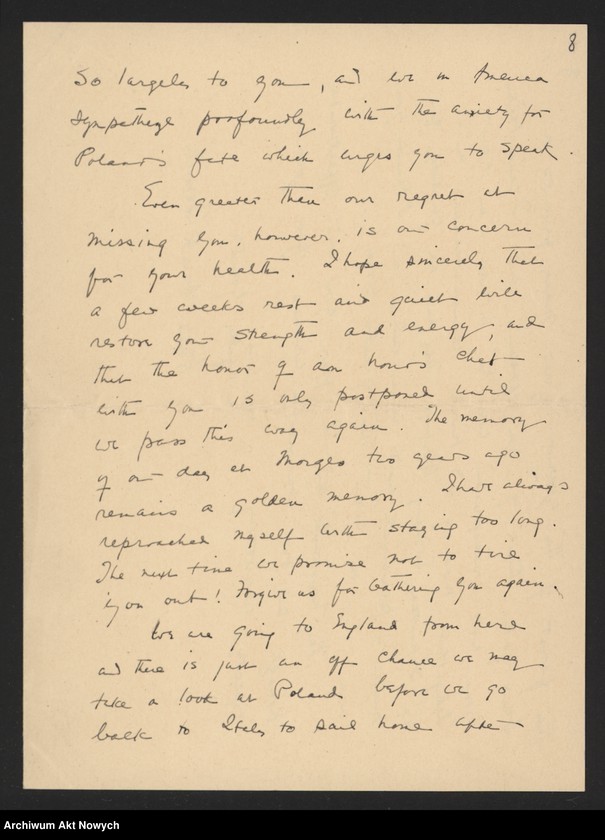 8
So largely to you, and we in America
sympathize profoundly with the anxiety for
Poland's fate which urges you to speak.
Even greater than our regret at
missing you, however, is our concern
for your health. I hope sincerely that
a few weeks rest and quiet will
restore your strength and energy, and
that the honor of an hour's chat
with you is only postponed until
we pass this way again. The memory
of our day at Morges two years ago
remains a golden memory. I have always
reproached myself with staying too long.
The next time we promise not to tire
you out! Forgive us for bothering you again.
We are going to England from here
and there is just an off chance we may
take a look at Poland before we go
back to Italy to sail home after
Archiwum Akt Nowych